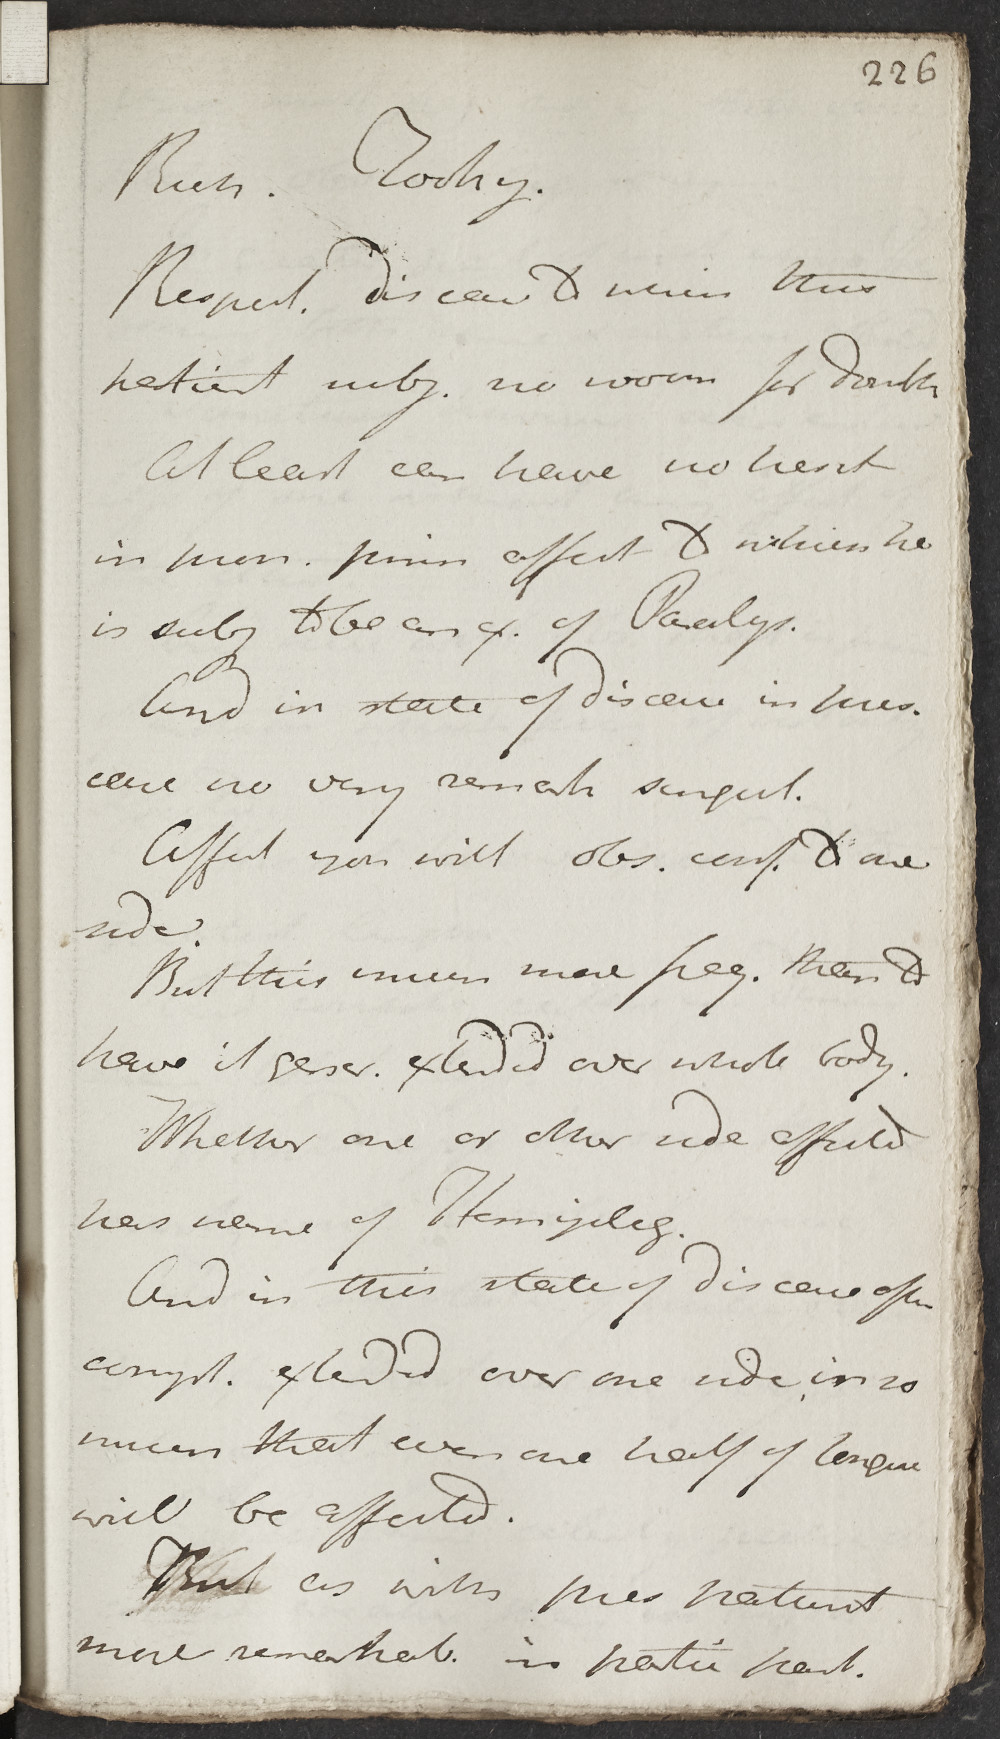 226
Rich. Toohy.
Respect. disease to which this
patient subj. no room for doubt
At least can have no hesit
in pron. princ affect to which he
is subj to be an ex. of Paralys.
And in state of disease in pres.
case no very remark singul.
Affect you will obs. conf. to one
side.
But this much more freq. than to
have it gener. extended over whole body.
Whether one or other side affected
has name of Hemipleg.
And in this state of disease often
compl. extended over one side, in so
much that even one half of tongue
will be affected.
But as with pres patient
more remarkab. in partic part.